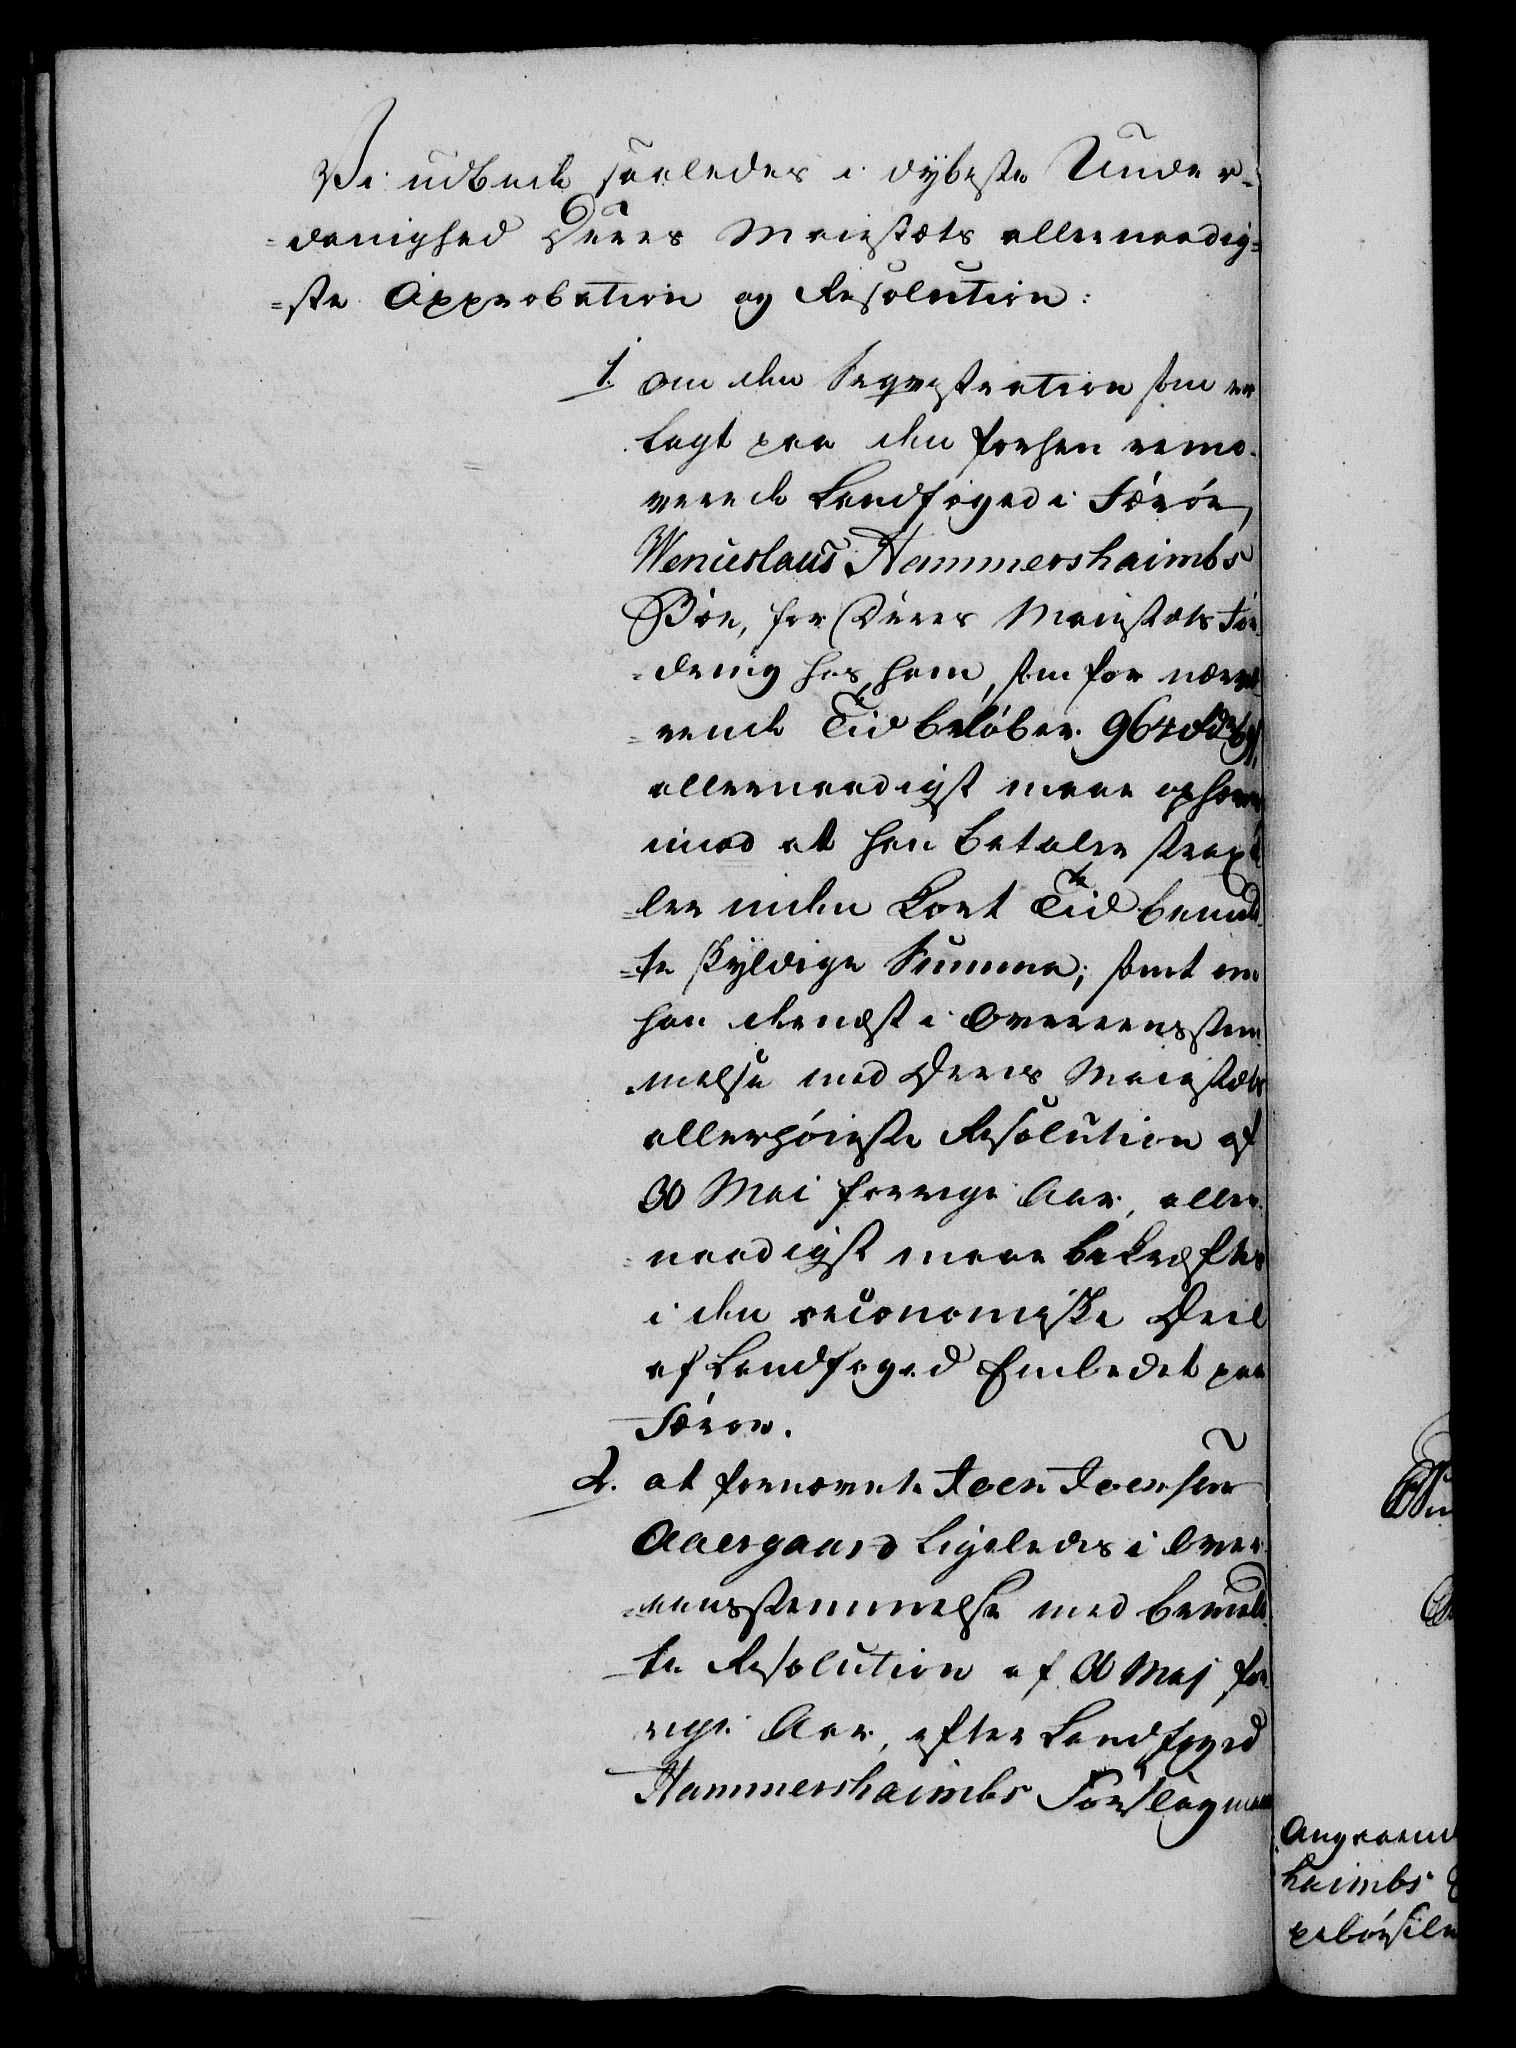 Vi udbede saaledes i dybeste Under-
-danighed Deres Majestæts allernaadig-
-ste Approbation og Resolution:
1. om den Seqvestration som er
lagt paa den forhen remo-
verede Landfoged i Færøe,
Wenceslaus Hammershaimbs
Boe, for Deres Majestæts For-
-dring hos ham, som for nærvæ-
-rende Tid beløber 964 Rd
allernaadigst maae ophæves
imod at han betaler strax el-
-ler inden kort Tid bemeld-
-te skyldige Summa; samt om
han dernæst i Overeensstem-
-melse med Deres Majestæts
allerhøieste Resolution af
30 Mai forrige Aar, aller-
-naadigst maae bekræftes
i den oeconomiske Deel
af Landfoged Embedet paa
Færøe.
2. at fornævnte Joen Joensen
Aaergaard ligeledes i Over-
-eensstemmelse med bemeld-
-te Resolution af 30 Maj for-
rige Aar, efter Landfoged
Hammershaimbs Forslag maae
haimbs